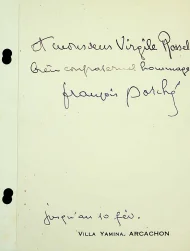 à monsieur Virgile Rossel
bien confraternel hommage
françois porché
jusqu'au 10 fév.
VILLA YAMINA. ARCACHON